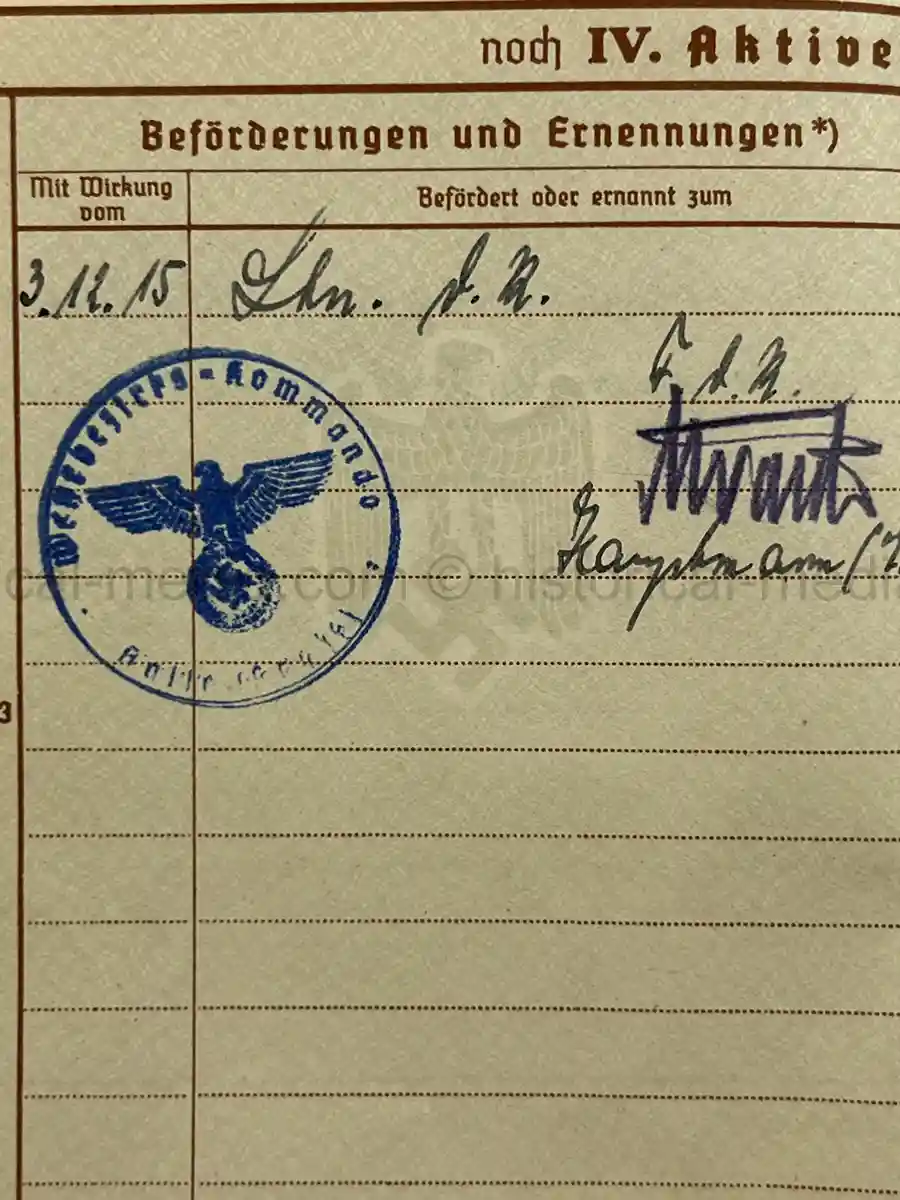 noch IV. Aktive
Beförderungen und Ernennungen*)
Mit Wirkung
vom
Befördert oder ernannt zum
3.12.15
Ltn. d. R.
F. d. R.
Wehrbezirks-Kommando
Hauptmann (
cal-media.com © historical-media
3